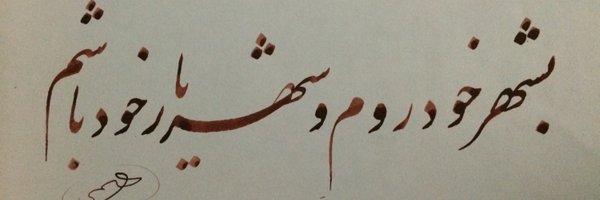 بشهر خود روم و شهریار خود باشم